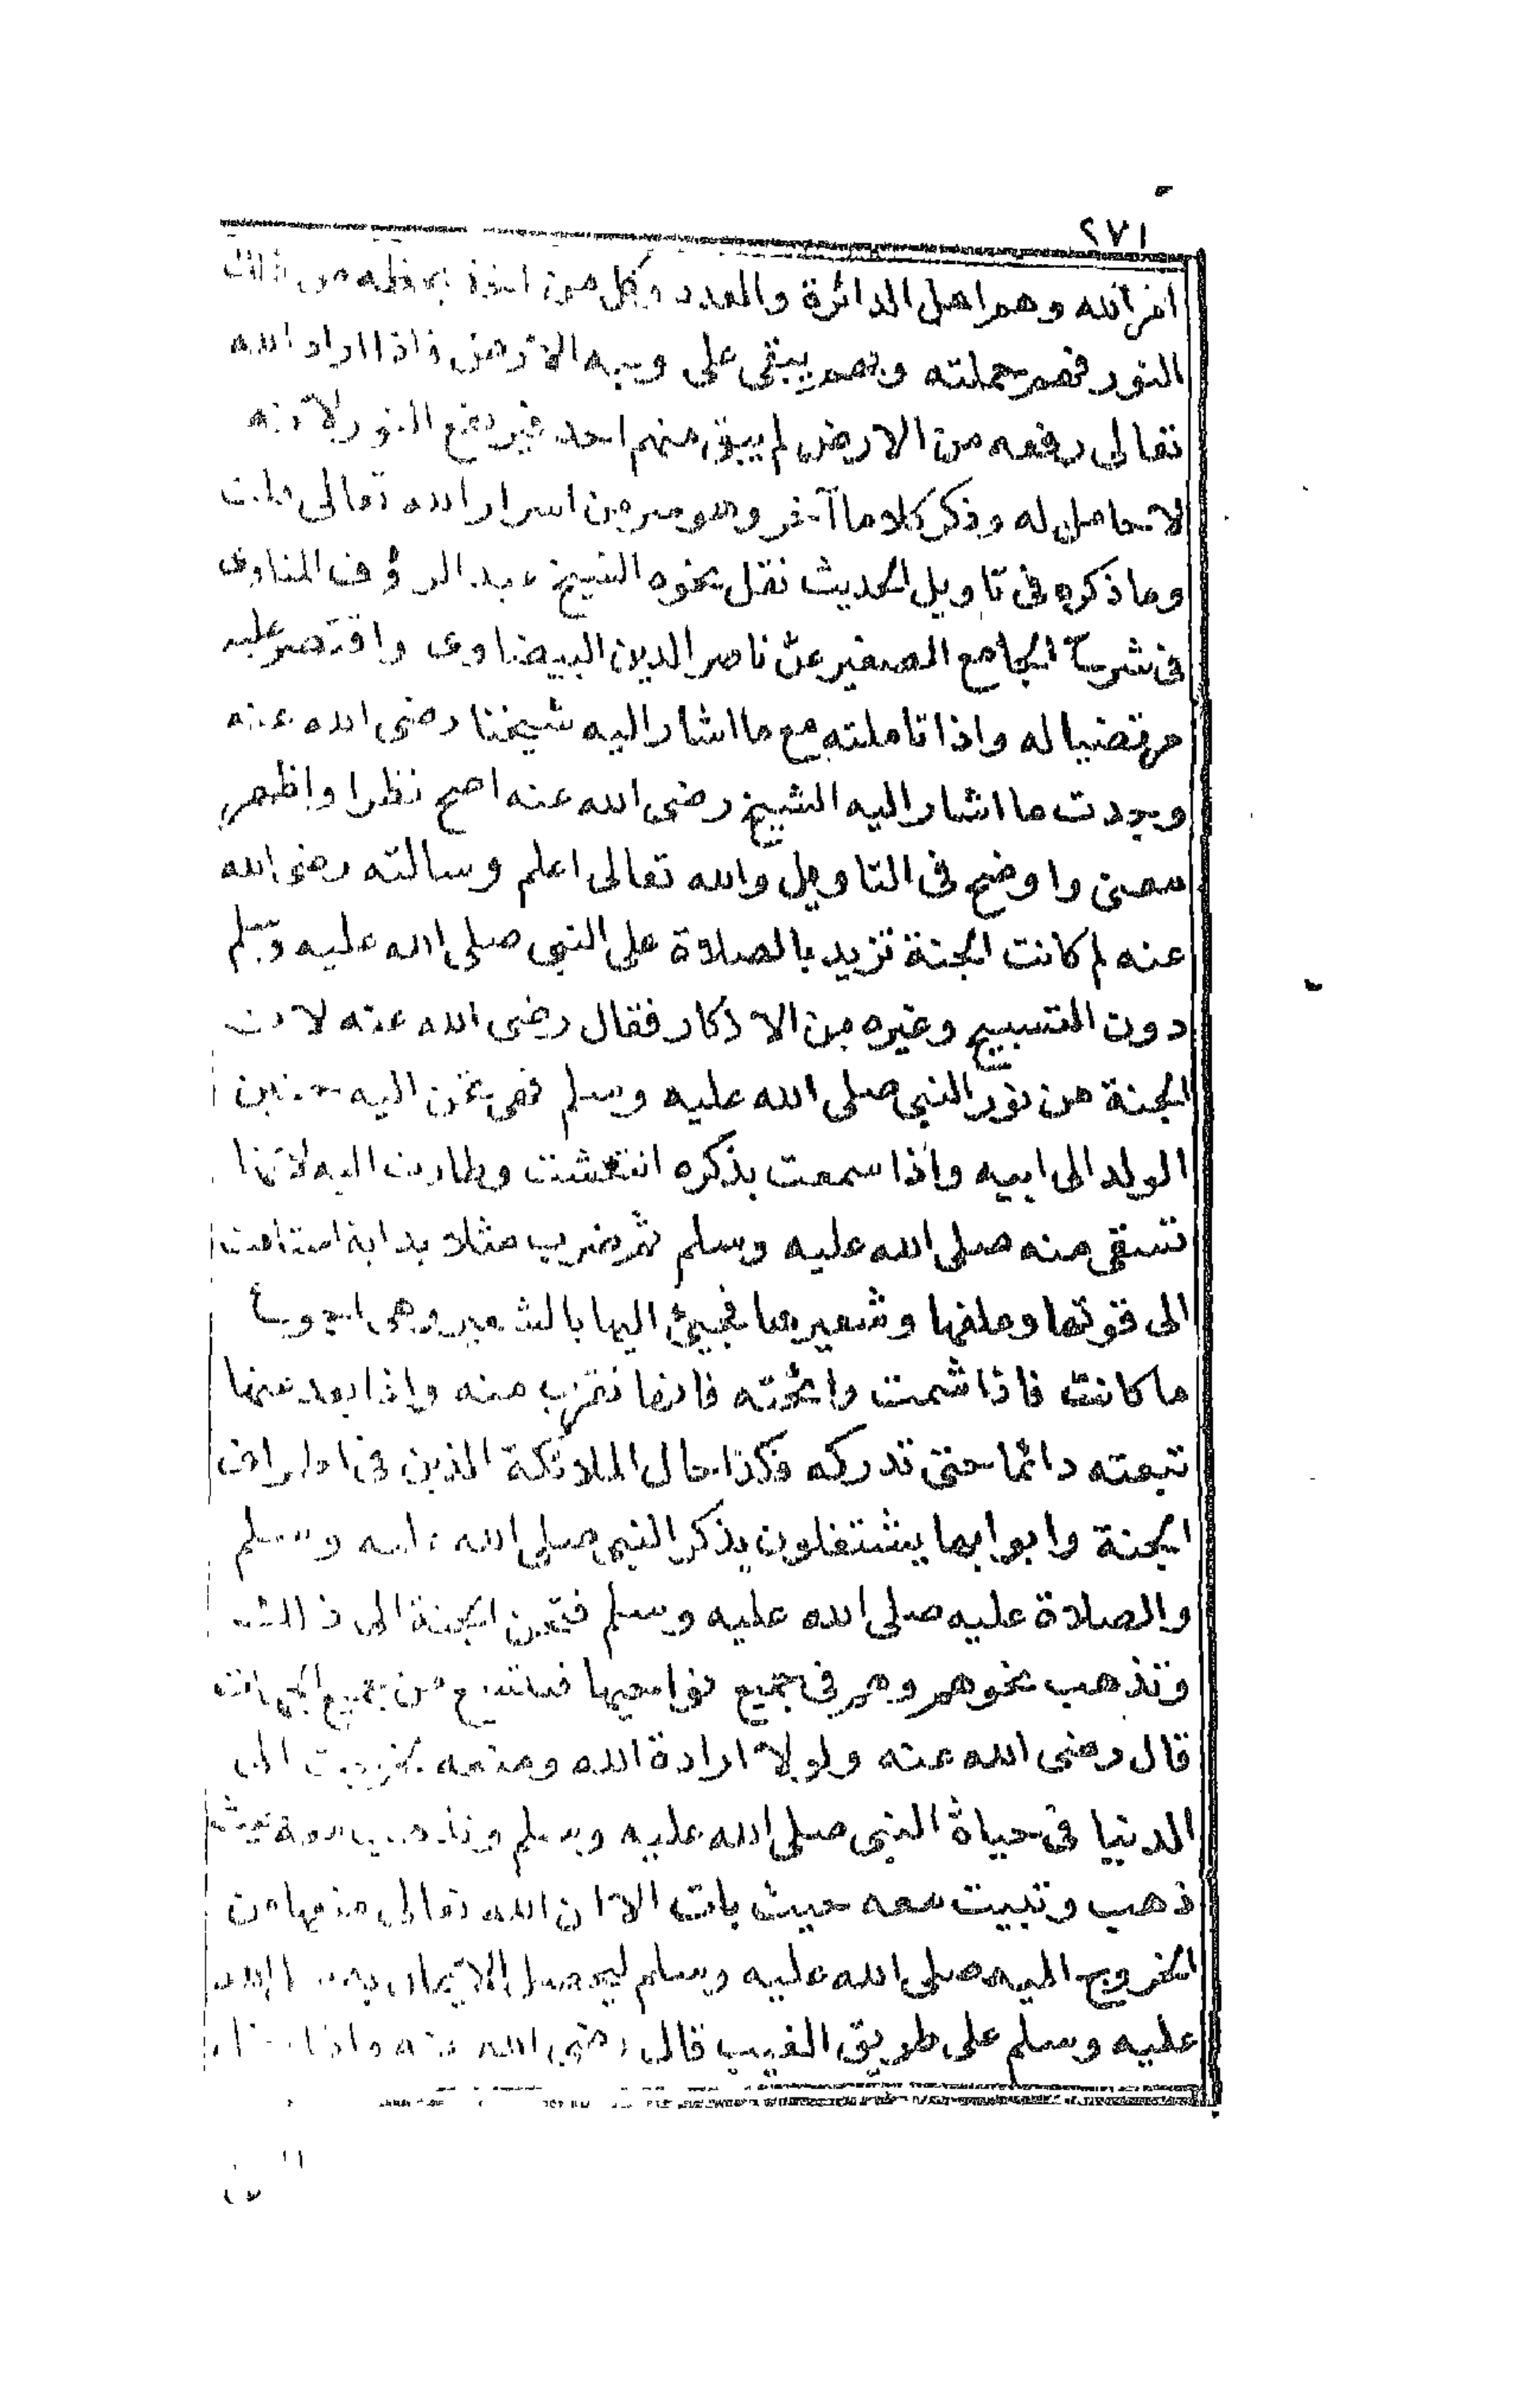 ٢٧١
اخر الله وهم اهل الدائرة والعدد وكل من اخذ بحظه من ذلك
النور فهم حملته وبهم يبقى على وجه الارض فاذا اراد الله
تعالى رفعه من الارض لم يبق منهم احد فيرفع النور لانه
لا حامل له وذكر كلاما آخر وهو سر من اسرار الله تعالى قلت
وما ذكره فى تاويل الحديث نقل نحوه الشيخ عبد الرؤف المناوى
فى شرح الجامع الصغير عن ناصر الدين البيضاوى واقتصر عليه
مرتضيا له واذا تاملته مع ما اشار اليه شيخنا رضى الله عنه
وجدت ما اشار اليه الشيخ رضى الله عنه اصح نظرا واظهر
معنى واوضح فى التاويل والله تعالى اعلم وسالته رضى الله
عنه لم كانت الجنة تزيد بالصلاة على النبى صلى الله عليه وسلم
دون التسبيح وغيره من الاذكار فقال رضى الله عنه لان
الجنة من نور النبى صلى الله عليه وسلم فهى تحن اليه حنين
الولد الى ابيه واذا سمعت بذكره انتعشت وطارت اليه لانها
تسقى منه صلى الله عليه وسلم ثم ضرب مثلا بدابة اشتاقت
الى قوتها وعلفها وشعيرها فجيئ اليها بالشعير وهى اجوع
ما كانت فاذا شمت رائحته فانها تقرب منه واذا بعد عنها
تبعته دائما حتى تدركه فكذا حال الملائكة الذين فى اطراف
الجنة وابوابها يشتغلون بذكر النبى صلى الله عليه وسلم
والصلاة عليه صلى الله عليه وسلم فتحن الجنة الى ذلك
وتذهب نحوهم وهم فى جميع نواحيها فتتسع من جميع الجهات
قال رضى الله عنه ولولا ارادة الله ومنعه لخرجت الى
الدنيا فى حياة النبى صلى الله عليه وسلم وتذهب معه حيث
ذهب وتبيت معه حيث بات الا ان الله تعالى منعها من
الخروج اليه صلى الله عليه وسلم ليحصل الايمان به صلى الله
عليه وسلم على طريق الغيب قال رضى الله عنه واذا